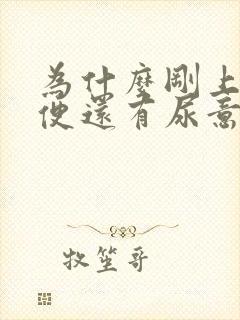 為什麼剛上
便還有尿意
牧笙哥